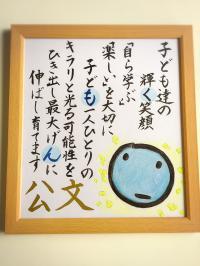 子ども達の
輝く笑顔
「自ら学ぶ」
「楽しい」を大切に
子ども一人ひとりの
キラリと光る可能性を
ひき出し最大げんに
伸ばし育てます
公文